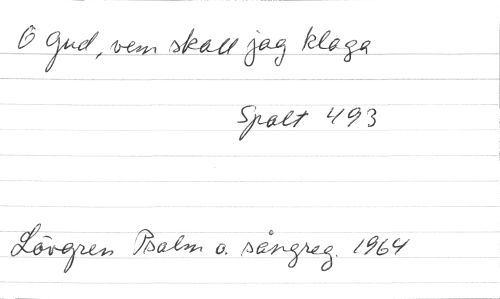 O gud, vem skall jag klaga
Spalt 493
Lövgren Psalm o. sångreg. 1964